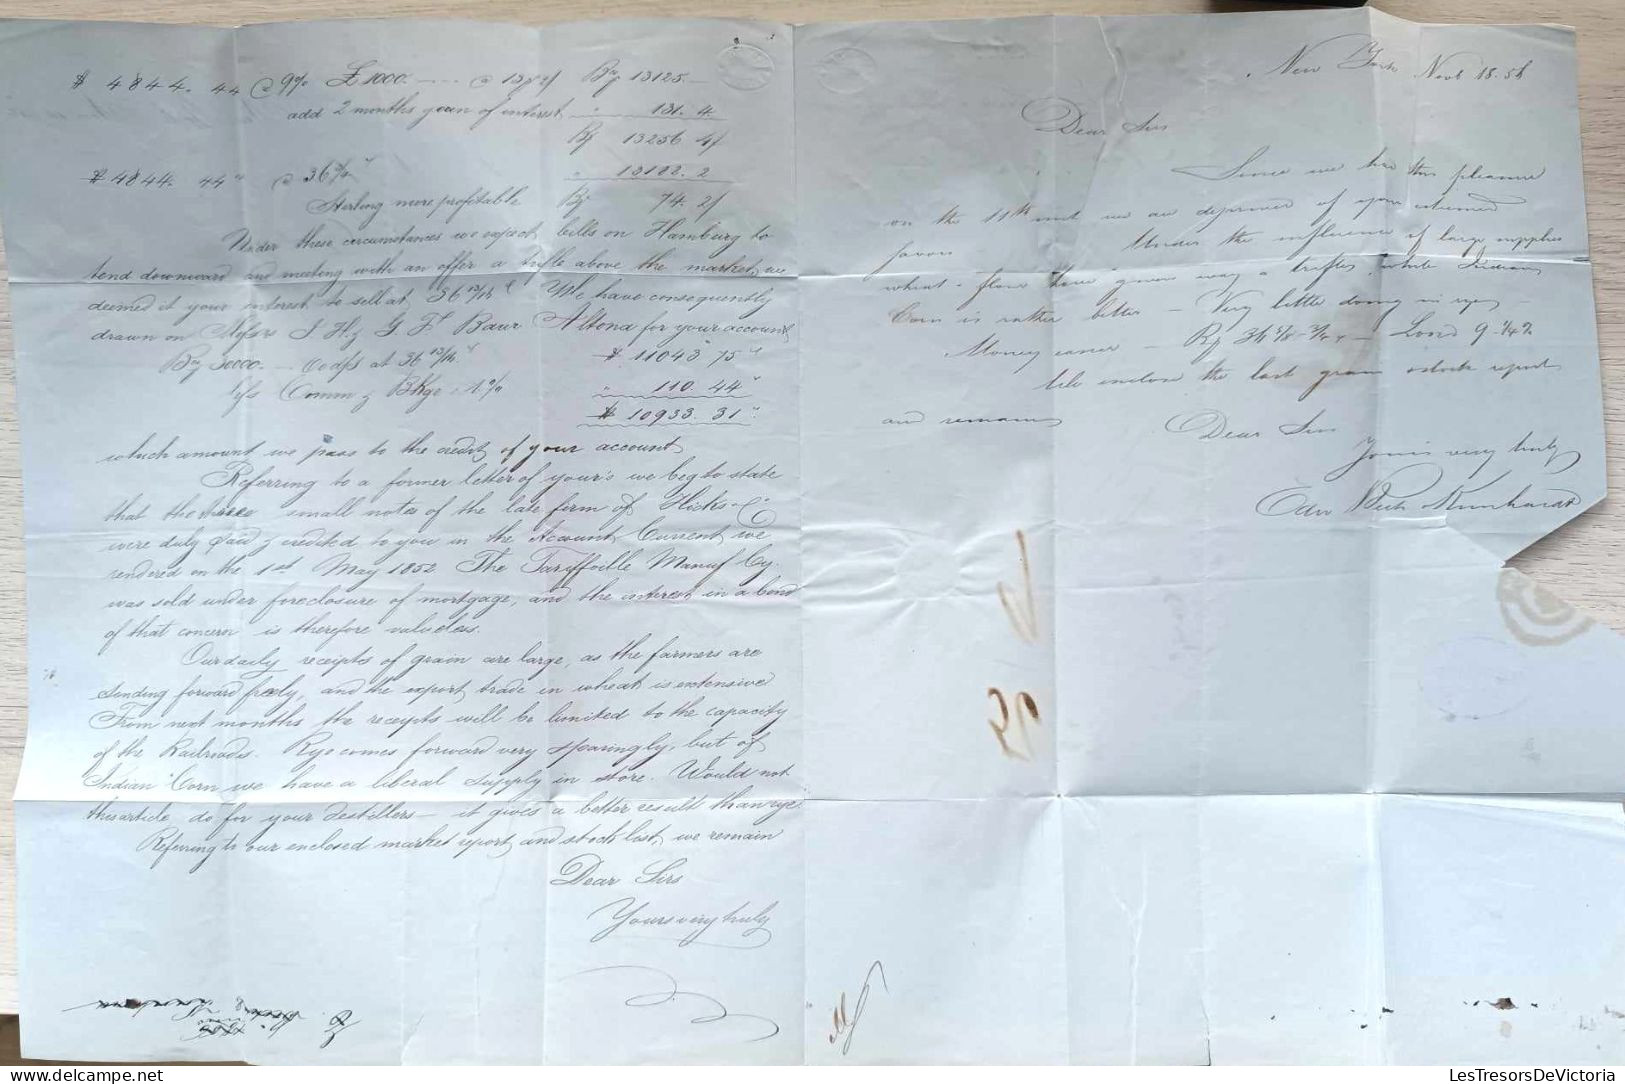 $ 4844. 44 @ 9% £1000. @ 13 Bco 13125.
add 2 months gain of interest " 131. 4.
Bco 13256 4/
$ 4844. 44 @ 36 " 13182. 2
Sterling more profitable Bco 74. 2/
Under these circumstances we expect bills on Hamburg to
tend downward and meeting with an offer a trifle above the market, we
deemed it your interest to sell at 36 13/16. We have consequently
drawn on Messrs J. H. & G. F. Baur Altona for your account
Bco 30000. 60 d/s at 36 13/16 $ 11043 75
less Comm & Bkge 1% " 110. 44
$ 10933. 31
which amount we pass to the credit of your account
Referring to a former letter of your's we beg to state
that the three small notes of the late firm of Hicks & C°
were duly paid & credited to you in the Account Current we
rendered on the 1st May 1852. The Tariffville Manuf Cy.
was sold under foreclosure of mortgage, and the interest in a bond
of that concern is therefore valueless.
Our daily receipts of grain are large, as the farmers are
sending forward freely, and the export trade in wheat is extensive
From next months the receipts will be limited to the capacity
of the Railroads. Rye comes forward very sparingly, but of
Indian Corn we have a liberal supply in store. Would not
this article do for your destillers — it gives a better result than rye.
Referring to our enclosed market report and stock list, we remain
Dear Sirs
Yours very truly
New York Novb 18. 56
Dear Sirs
Since we had this pleasure
on the 11th inst we are deprived of your esteemed
favors Under the influence of large supplies
wheat & flour have given way a trifle, while Indian
Corn is rather better — Very little doing in rye —
Money easier — 36 5/8 - 3/4 — Lond 9 - 1/4 %
We enclose the last grain & stock report
and remain
Dear Sirs
Yours very truly
Kunhardt
LesTresorsDeVictoria